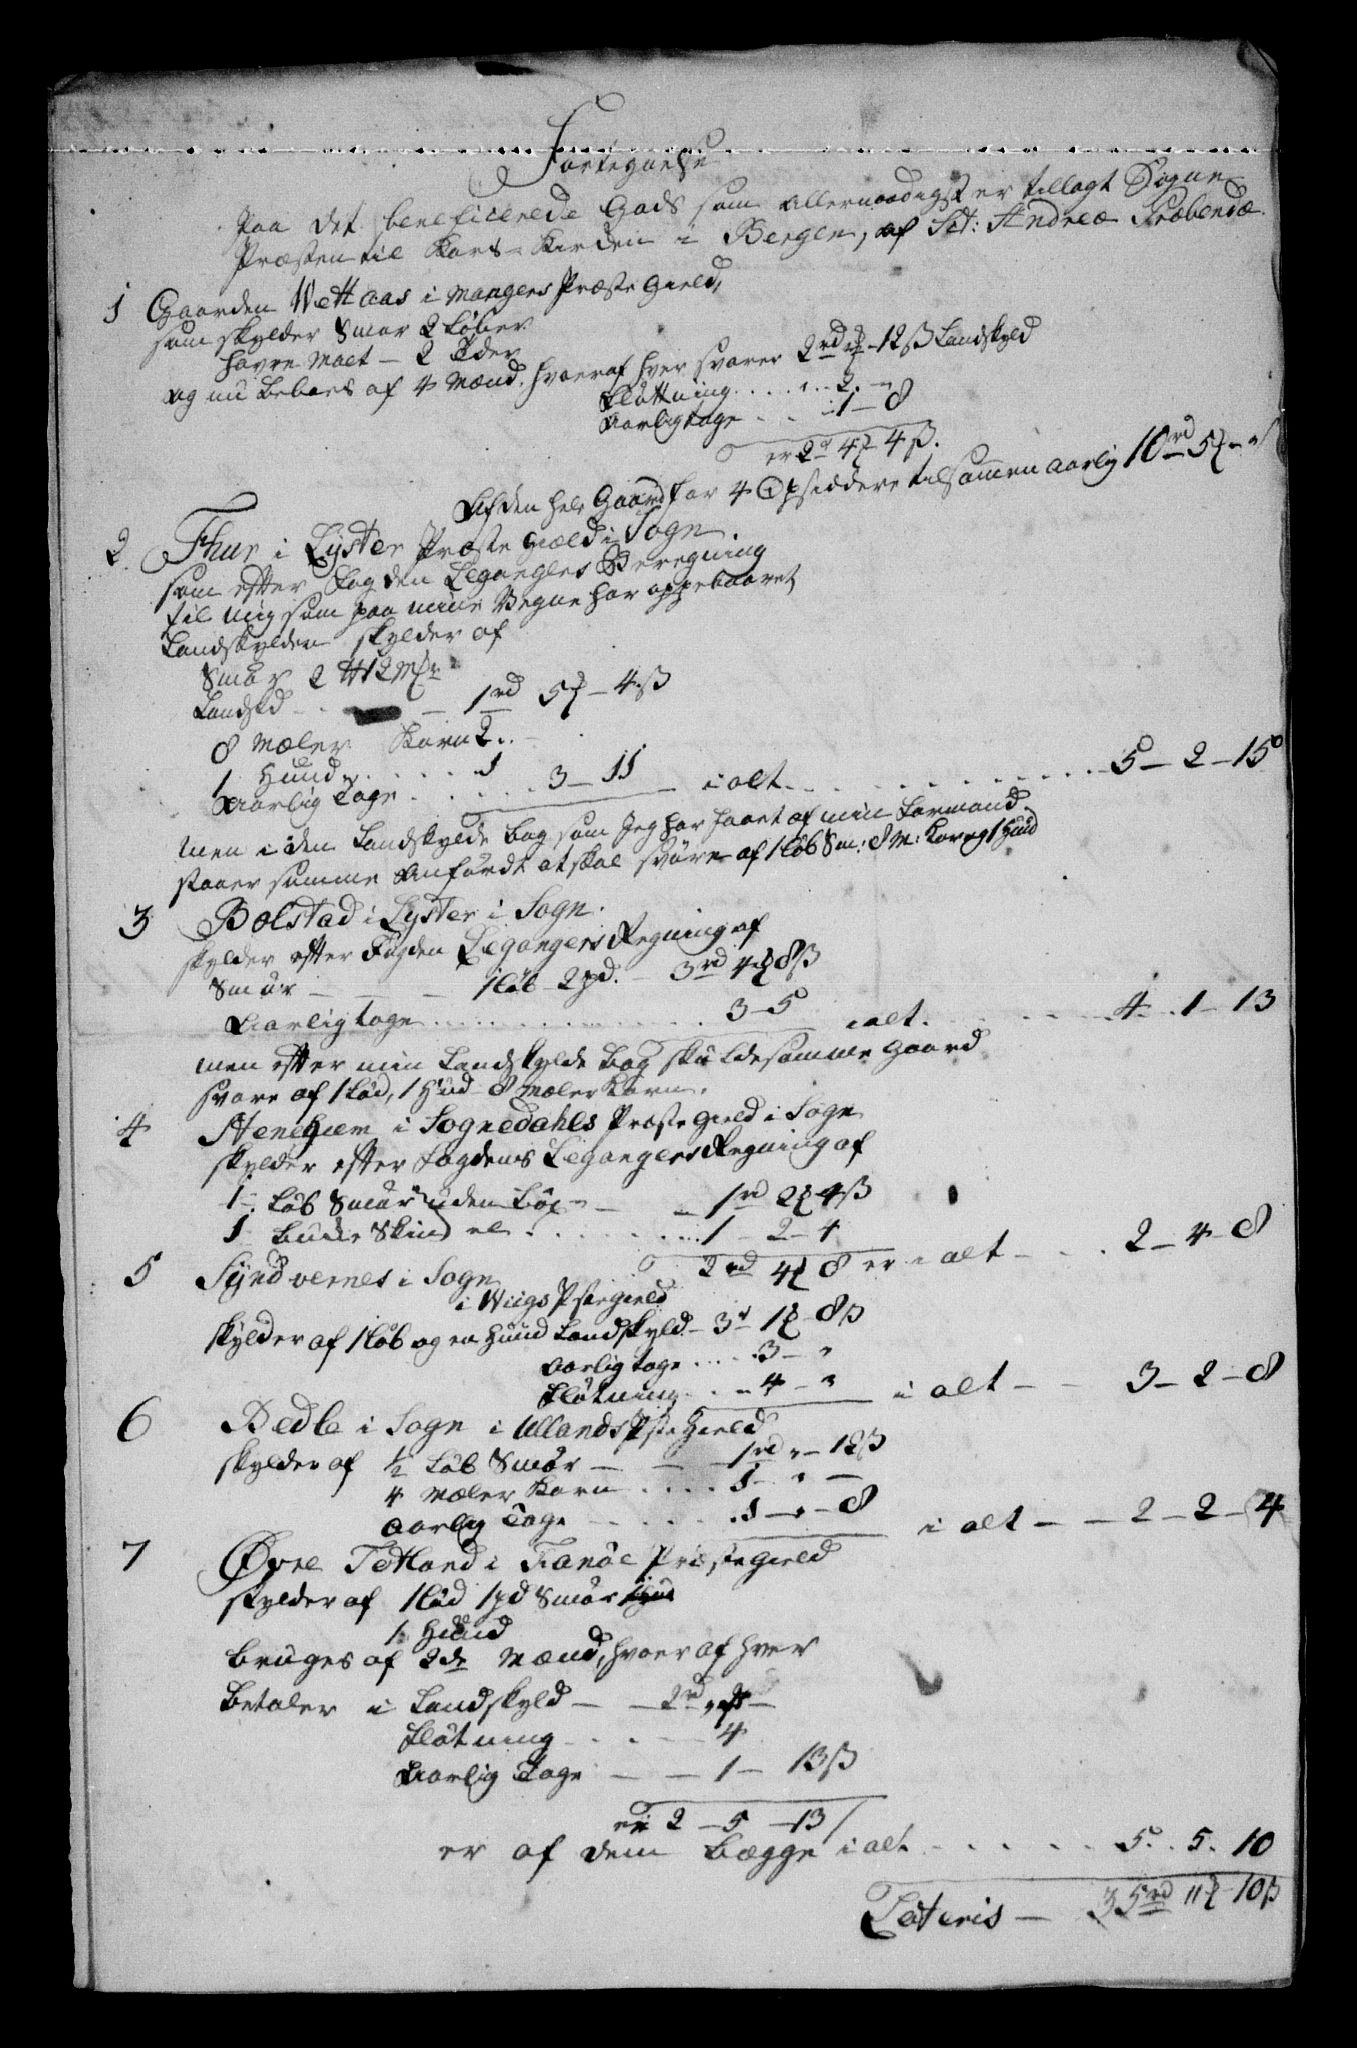 Fortegnelse
paa det beneficerede Gods som allernaadigst er tillagt Sogne
Præsten til Kors-Kirken i Bergen, af Sct: Andreæ Præbende
1 Gaarden Wettaas i Mangers Præste Gield,
som skylder Smør 2 Løber
havre Malt - 2 
og nu beboes af 4 Mænd, hvoraf hver svarer 2rd - 12ß Landskyld
Fløttning . . . . 2. -
Aarlig tage . . 1 - 8
er 2d 4 4ß.
Af den hele Gaard for 4 Opsiddere tilsammen aarlig 10rd 5 - "
2. Thur i Lyster Præste Gield i Sogn
som efter Fogden Legangers Beregning
til mig som paa mine Vegne har oppebaaret
Landskylden skylder af
Smør 2 12
Landskd - . - 1rd 5 - 4ß
8 Mæler Korn 2 . . -
1 Huud . . . . 1
Aarlig Tage . . . . . 3 - 11 i alt . . . . . . . . . 5 - 2 - 15
Men i den Landskylds bog som Jeg har faaet af min Formand
staaer samme anfördt at skal svare af 1 Løb Sm: 8 M: Korn og 1 Huud
3 Bolstad i Lyster i Sogn.
skylder efter Fogden Legangers Regning af
Smør - - - 1 Løb 2pd. - 3rd 4 8ß
Aarlig tage . . . . . . . . . . 3 - 5 i alt . . . . . 4 . . 1 - 13
men efter min Landskylds bog skulde samme Gaard
svare af 1 Løb, 1 Hud 8 Mæler Korn.
4 Steenhiem i Sognedahls Præste Gield i Sogn
skylder efter Fogdens Legangers Regning af
1. Løb Smør uden - - 1rd 2 4ß
1 Bukke Skind . . . . . . . 1 - 2 - 4
2rd 4 8 er i alt - . . 2 - 4 - 8
5 Syndvernes i Sogn
i Wiigs Pstegield
skylder af 1 Løb og en Huud Landskyld - 3d 1 - 8ß
Aarlig tage . . . . 3 - "
Fløtning . . - 4 - " i alt - - 3 - 2 - 8
6 Bedle i Sogn i Ullands Pste Gield
skylder af ½ Løb Smør - - - 1rd " - 12ß
4 Mæler Korn . . . . 1 - " -
Aarlig Tage - . . . . 1 - " - 8 i alt - - 2 - 2 - 4
7 Øvre Tetland i Fanöe Præstegield
skylder af 1 Løb 1pd Smør
1 Huud
bruges af 2de Mænd, hvoraf hver
betaler i Landskyld - - 2rd
Fløtning - . . - 4
Aarlig Tage - - 1 - 13ß
er 2 - 5 - 13
er af dem begge i alt . . . . . . 5 . . 5 . 10
Lateris - 35rd 11 - 10ß